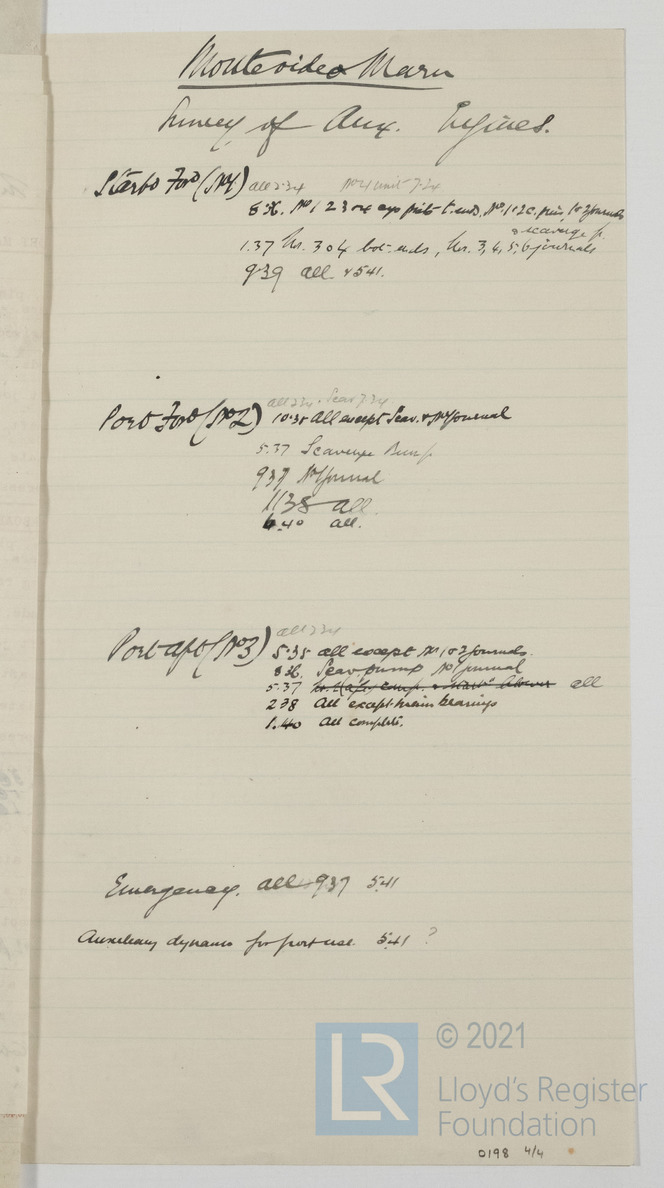 Montevideo Maru
Survey of Aux. Engines.
Starbd Ford (No 1) all 2·34 No 4 unit 7·34
8 36. No 1 2 3 & 4 t. ends, No 1 & 2 c. pins, 1 & 2 journals
& scavenge p.
1.37 Nos. 3 & 4 bot-ends, Nos. 3, 4, 5, 6 journals
9 39 all 5 41.
Port Ford (No 2) all 2 34 · Scav 7 34
10·35 All except Scav. & No 1 journal
5.37 Scavenge Pump
9 37 No 1 journal
11 38 all.
4.40 all.
Port aft (No 3) all 2 34
5·35 all except No 1 & 2 journals.
8 36. Scav. pump No 1 journal
5.37 all
2 38 All except main bearings
1.40 All complete.
Emergency. all 9 37 5 41
Auxiliary dynamo for port use. 5 41 ?
© 2021
LR
Lloyd's Register
Foundation
0198 4/4